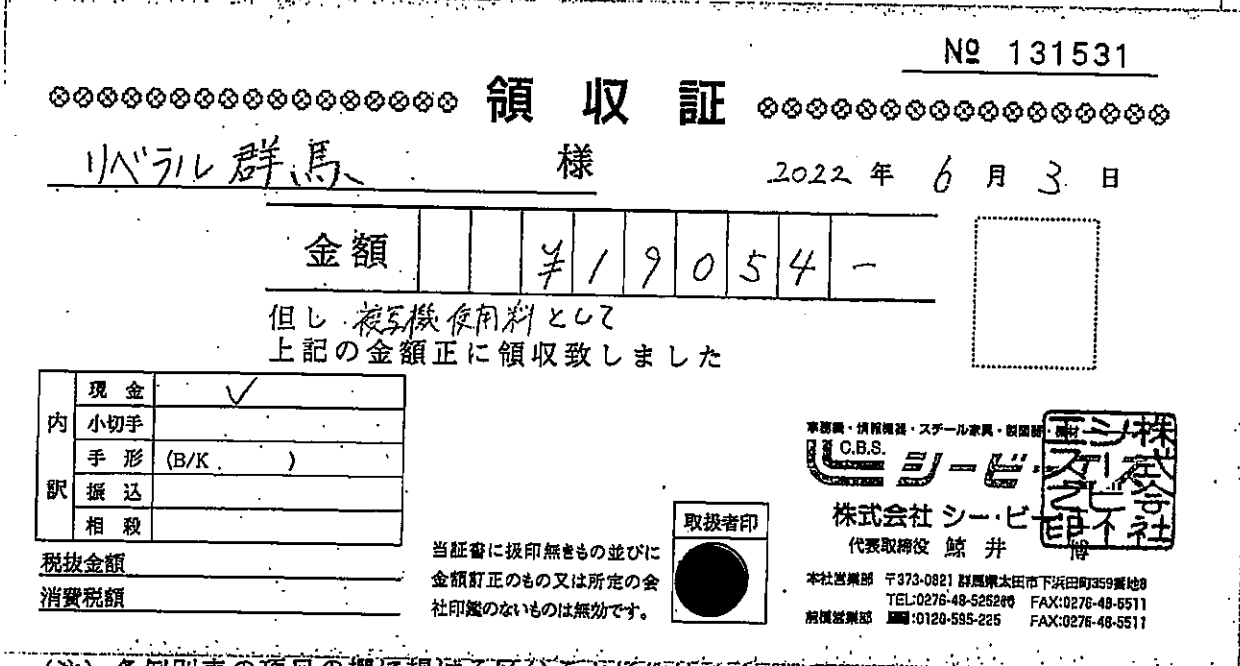 № 131531
領収証
リベラル群馬 様
2022年6月3日
金額 ¥19054-
但し 複写機使用料として
上記の金額正に領収致しました
内訳
現金 ✓
小切手
手形 (B/K )
振込
相殺
税抜金額
消費税額
当証書に扱印無きもの並びに
金額訂正のもの又は所定の会
社印鑑のないものは無効です。
取扱者印
事務機・情報機器・スチール家具・
C.B.S.
シー・ビー
株式会社 シー・ビー
代表取締役 鯨井 博
本社営業部 〒373-0821 群馬県太田市下浜田町359番地8
FAX:0276-48-5511
前橋営業部 :0120-595-225 FAX:0276-48-5511